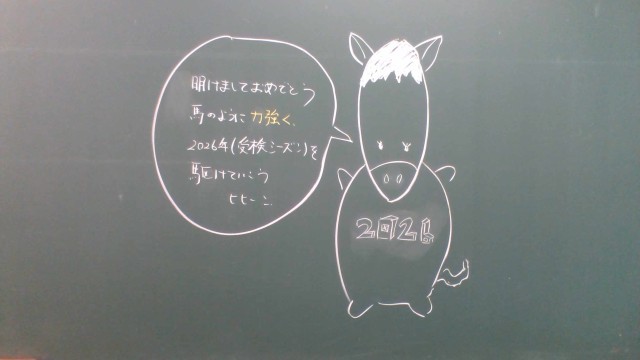 明けましておめでとう
馬のように力強く、
2026年(受検シーズン)を
駆けていこう
ヒヒーン
2026